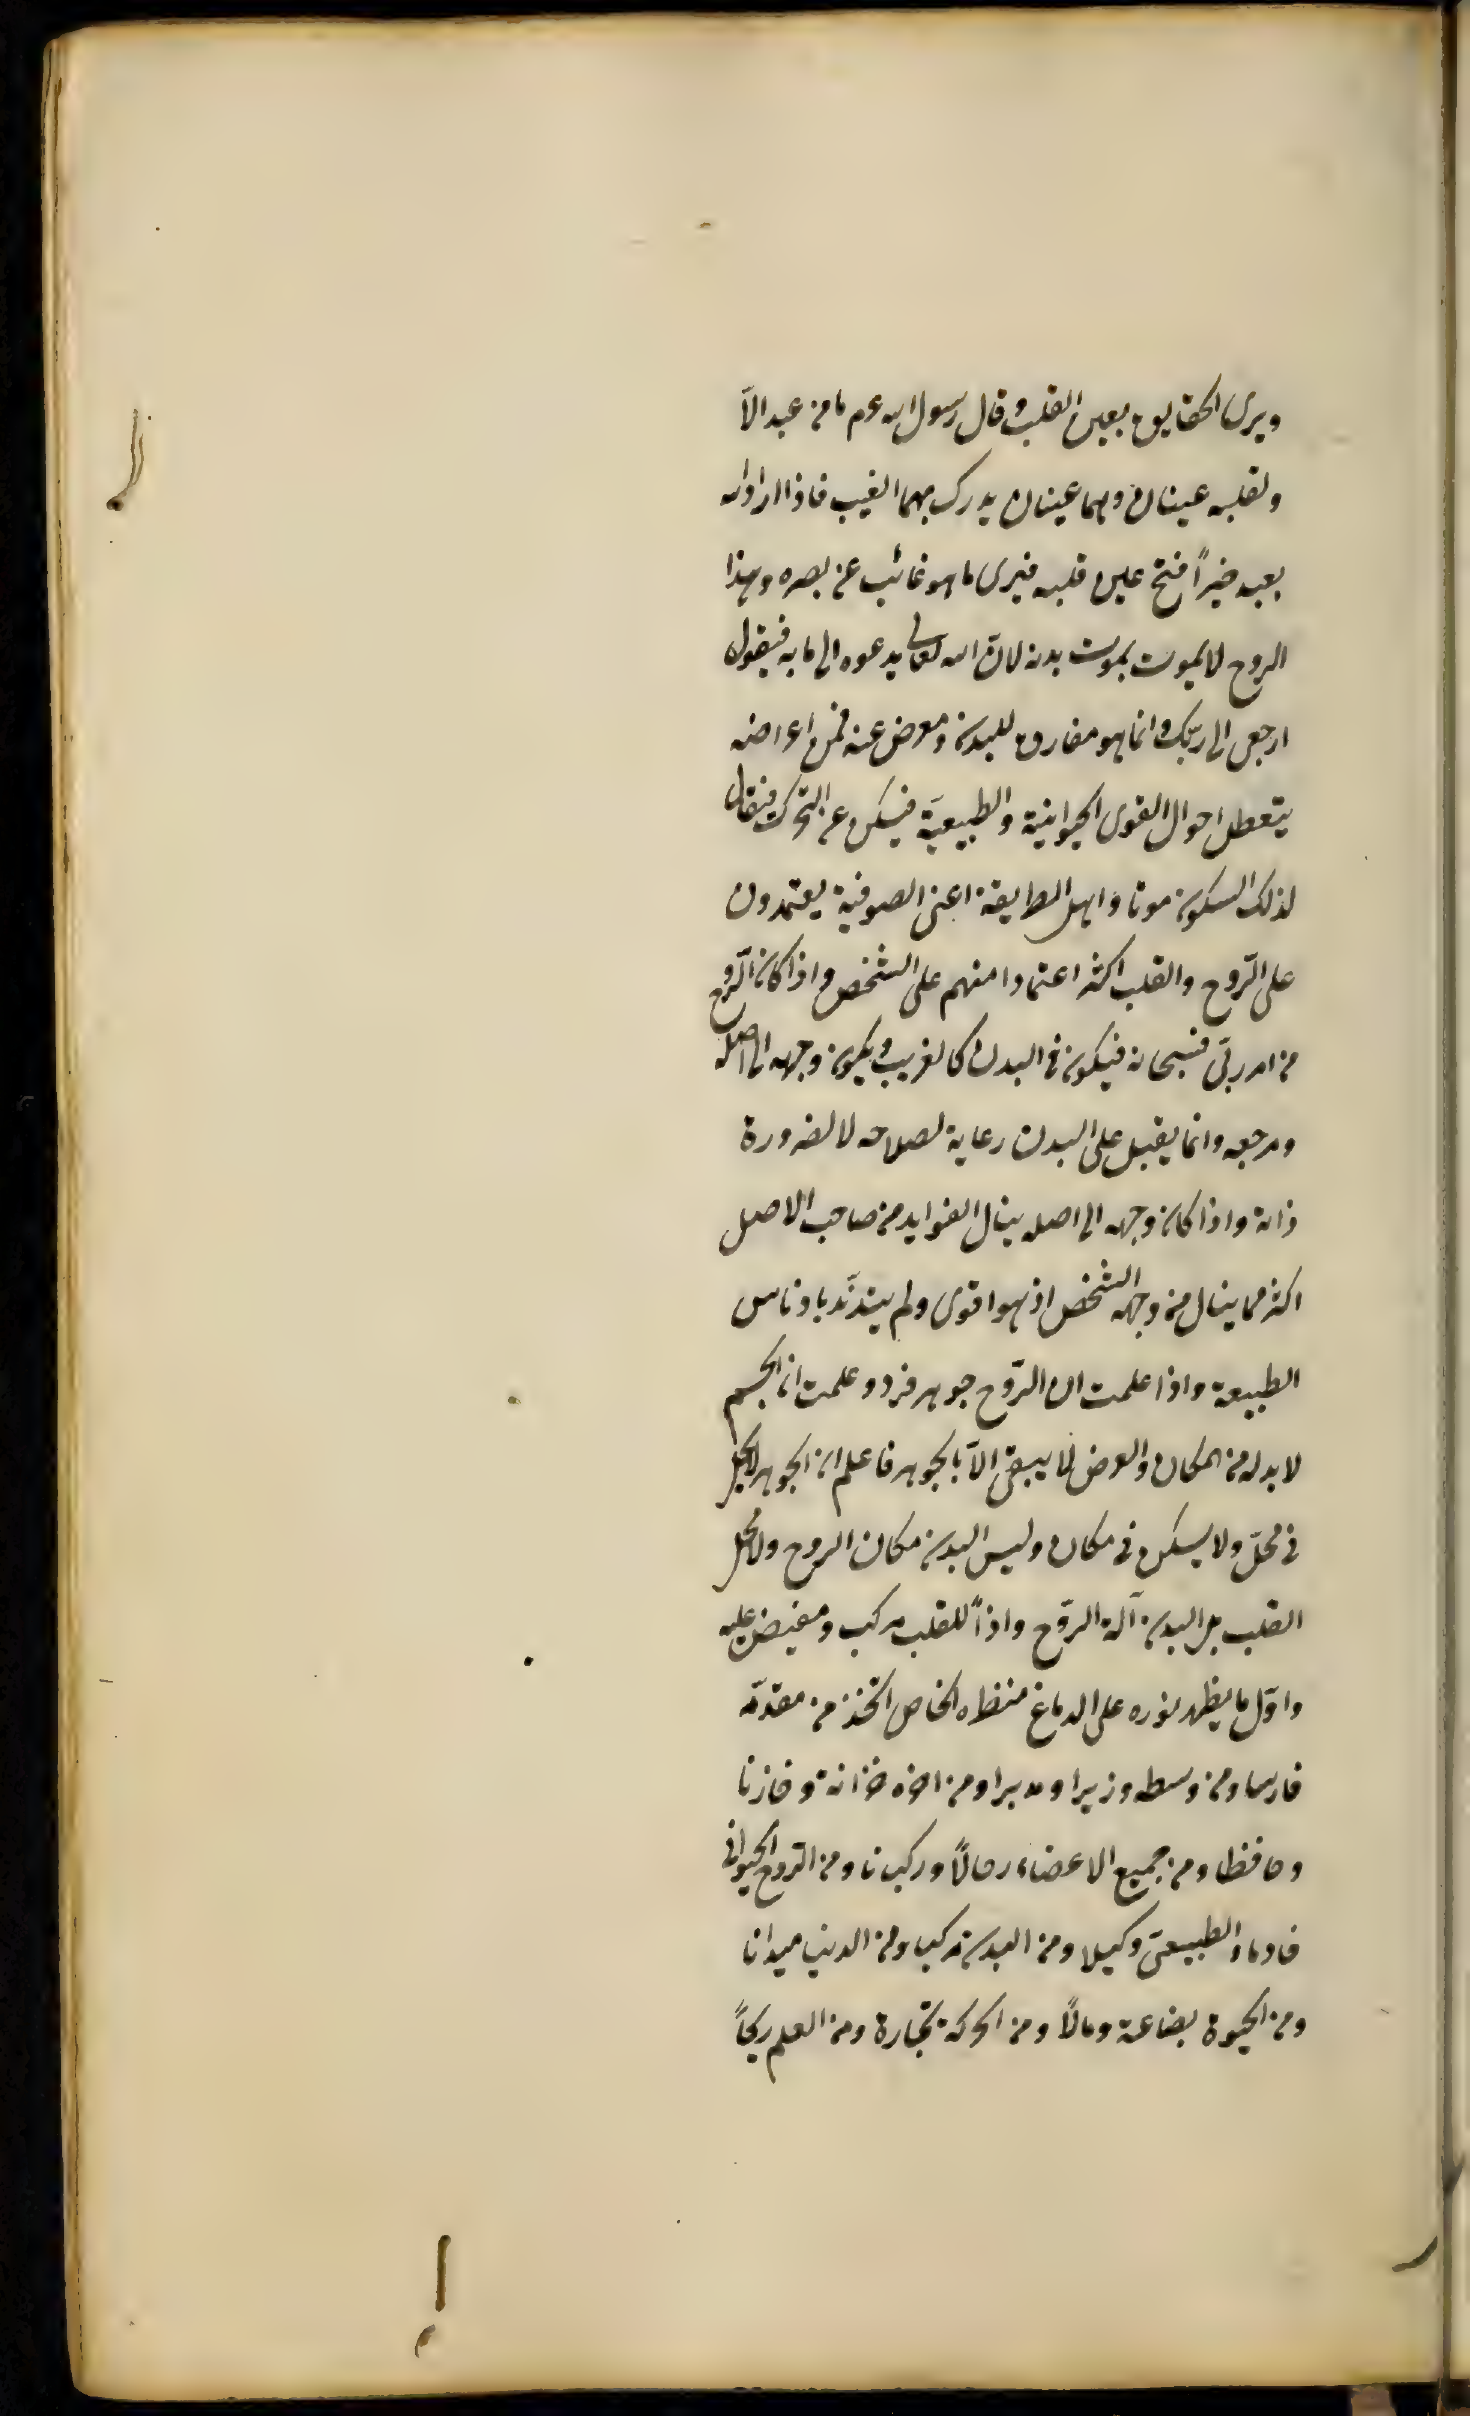 ويرى الحقايق بعين القلب وقال رسول الله عم ما من عبد الّا
ولقلبه عينان وهما عينان يدرك بهما الغيب فاذا اراد الله
بعبد خيراً فتح عين قلبه فيرى ما هو غائب عن بصره وهذا
الروح لا يموت بموت بدنه لانّ الله تعالى يدعوه الى بابه فيقول
ارجعى الى ربّك وانما هو مفارق للبدن ومعرض عنه فمن اعراضه
يتعطل احوال القوى الحيوانية والطبيعيّة فيسكن عن التحرك فيقال
لذلك السكون موتا واهل الطريقة اعنى الصوفية يعتمدون
على الرّوح والقلب اكثر اعتمادا منهم على الشخص واذا كان الرّوح
من امر ربّى سبحانه فيكون فى البدن كالغريب ويكون وجهه الى اصله
ومرجعه وانما يقبل على البدن رعاية لصلاحه لا لضرورة
ذاته واذا كان وجهه الى اصله ينال الفوايد من صاحب الاصل
اكثر مما ينال من وجهه الشخص اذ هو اقوى ولم يتدنّس بادناس
الطبيعة واذا علمت ان الرّوح جوهر فرد وعلمت ان الجسم
لا بد له من المكان والعرض لا يبقى الّا بالجوهر فاعلم ان الجوهر لا يحلّ
فى محلّ ولا يسكن فى مكان وليس البدن مكان الروح ولا محل
القلب بل البدن آلة الرّوح واداً للقلب مركب ومفيض عليه
واوّل ما يظهر نوره على الدماغ منظره الخاص اتخذ من مقدّمه
فارسا ومن وسطه وزيرا ومدبرا ومن اخره خزانة وخازنا
وحافظا ومن جميع الاعضاء رجالًا وركبانا ومن الرّوح الحيوانى
خادما والطبيعىّ وكيلا ومن البدن مركبا ومن الدنيا ميدانا
ومن الحيوة بضاعة ومالًا ومن الحركة تجارة ومن العلم ربحاً